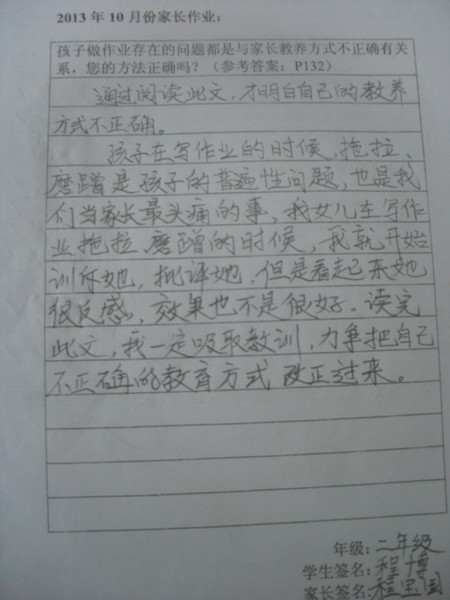 2013 年 10 月份家长作业：
孩子做作业存在的问题都是与家长教养方式不正确有关
系，您的方法正确吗？（参考答案：P132）
通过阅读此文，才明白自己的教养
方式不正确。
孩子在写作业的时候，拖拉、
磨蹭是孩子的普遍性问题，也是我
们当家长最头痛的事，我女儿在写作
业拖拉、磨蹭的时候，我就开始
训斥她，批评她，但是看起来她
很反感，效果也不是很好。读完
此文，我一定吸取教训，力争把自己
不正确的教育方式 改正过来。
年级：二年级
学生签名：程博
家长签名：程宝国